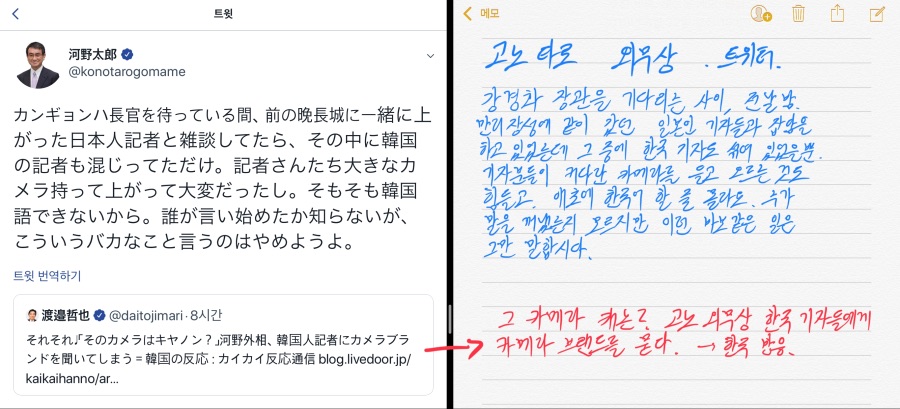 트윗
河野太郎
@konotarogomame
カンギョンハ長官を待っている間、前の晩長城に一緒に上
がった日本人記者と雑談してたら、その中に韓国
の記者も混じってただけ。記者さんたち大きなカ
メラ持って上がって大変だったし。そもそも韓国
語できないから。誰が言い始めたか知らないが、
こういうバカなこと言うのはやめようよ。
트윗 번역하기
渡邉哲也 @daitojimari · 8시간
それそれ」「そのカメラはキヤノン？」河野外相、韓国人記者にカメラブラ
ンドを聞いてしまう = 韓国の反応 : カイカイ反応通信 blog.livedoor.jp/
kaikaihanno/ar...
메모
고노 타로 외무상 . 트위터.
강경화 장관을 기다리는 사이, 전날 밤.
만리장성에 같이 갔던 일본인 기자들과 잡담을
하고 있었는데 그 중에 한국 기자도 섞여 있었을뿐.
기자분들이 커다란 카메라를 들고 오르는 것도
힘들고. 애초에 한국어 할 줄 몰라요. 누가
말을 꺼냈는지 모르지만 이런 바보같은 일은
그만 말합시다.
그 카메라 캐논? 고노 외무상 한국 기자들에게
카메라 브랜드를 묻다. → 한국 반응.